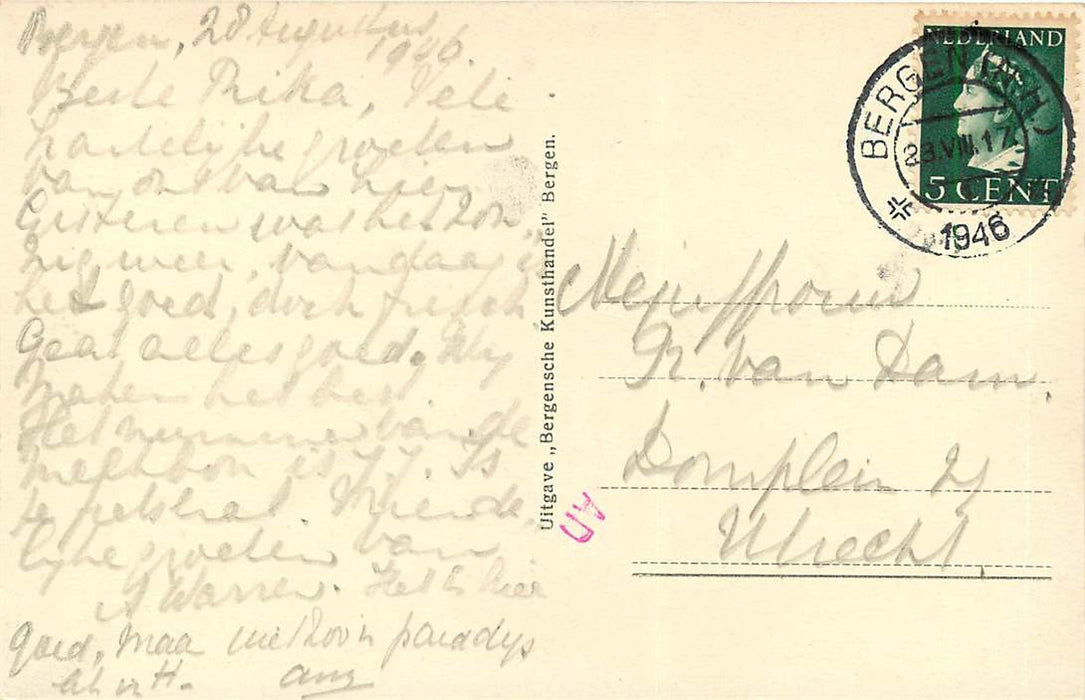 Bergen, 28 Augustus
1946.
Beste Rika, Vele
hartelijke groeten
van ons van hier.
Gisteren was het zon
nig weer, vandaag is
het goed, doch frisch.
Gaat alles goed. Wij
maken het best.
Het nummer van de
melkbon is 77. Is
te petstrat. Vriende
lijke groeten van
A Warren. Het is hier
goed, maar niet zoo'n paradijs
als in H.
Uitgave „Bergensche Kunsthandel” Bergen.
NEDERLAND
5 CENT
BERGEN (N.H.)
28.VIII.17
1946
Mejuffrouw
R. van Dam.
Domplein 21
Utrecht.
AD